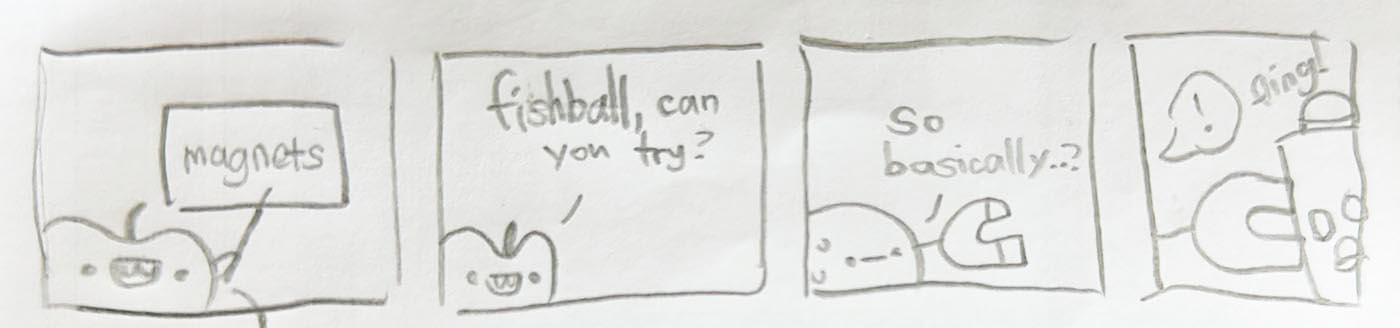 magnets
fishball, can
you try?
so
basically..?
!
ding!